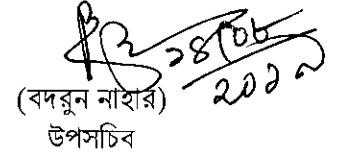 ১৪/০৮
২০১৯
(বদরুন নাহার)
উপসচিব